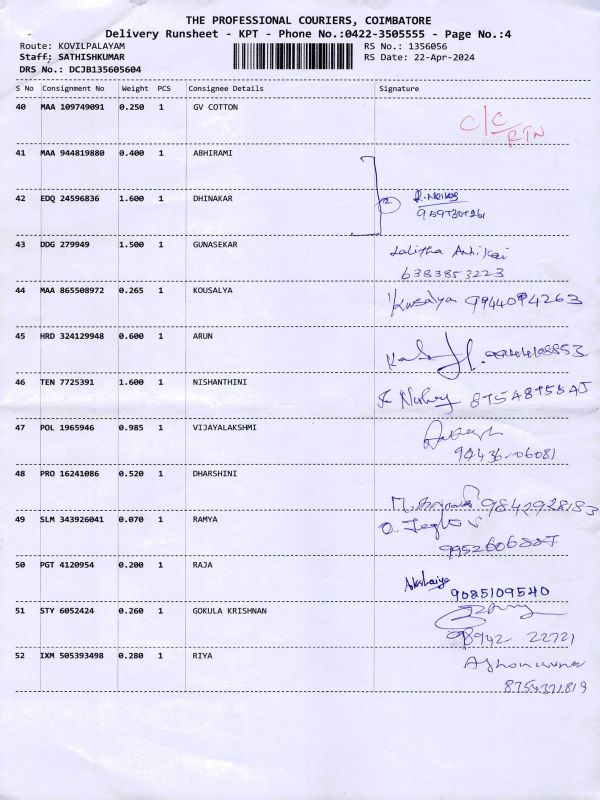 THE PROFESSIONAL COURIERS, COIMBATORE
Delivery Runsheet - KPT - Phone No.:0422-3505555 - Page No.:4
Route: KOVILPALAYAM RS No.: 1356056
Staff: SATHISHKUMAR RS Date: 22-Apr-2024
DRS No.: DCJB135605604
S No Consignment No Weight PCS Consignee Details Signature
40 MAA 109749091 0.250 1 GV COTTON
C/C
RTN
41 MAA 944819880 0.400 1 ABHIRAMI
42 EDQ 24596836 1.600 1 DHINAKAR
43 DDG 279949 1.500 1 GUNASEKAR
Lalitha
6383853223
44 MAA 865508972 0.265 1 KOUSALYA Kusalya
45 HRD 324129948 0.600 1 ARUN
46 TEN 7725391 1.600 1 NISHANTHINI
47 POL 1965946 0.985 1 VIJAYALAKSHMI
94436-06081
48 PRO 16241086 0.520 1 DHARSHINI
9842928183
49 SLM 343926041 0.070 1 RAMYA
50 PGT 4120954 0.200 1 RAJA
Akshaiya 9085109540
51 STY 6052424 0.260 1 GOKULA KRISHNAN
98942 22721
52 IXM 505393498 0.280 1 RIYA
8754371819